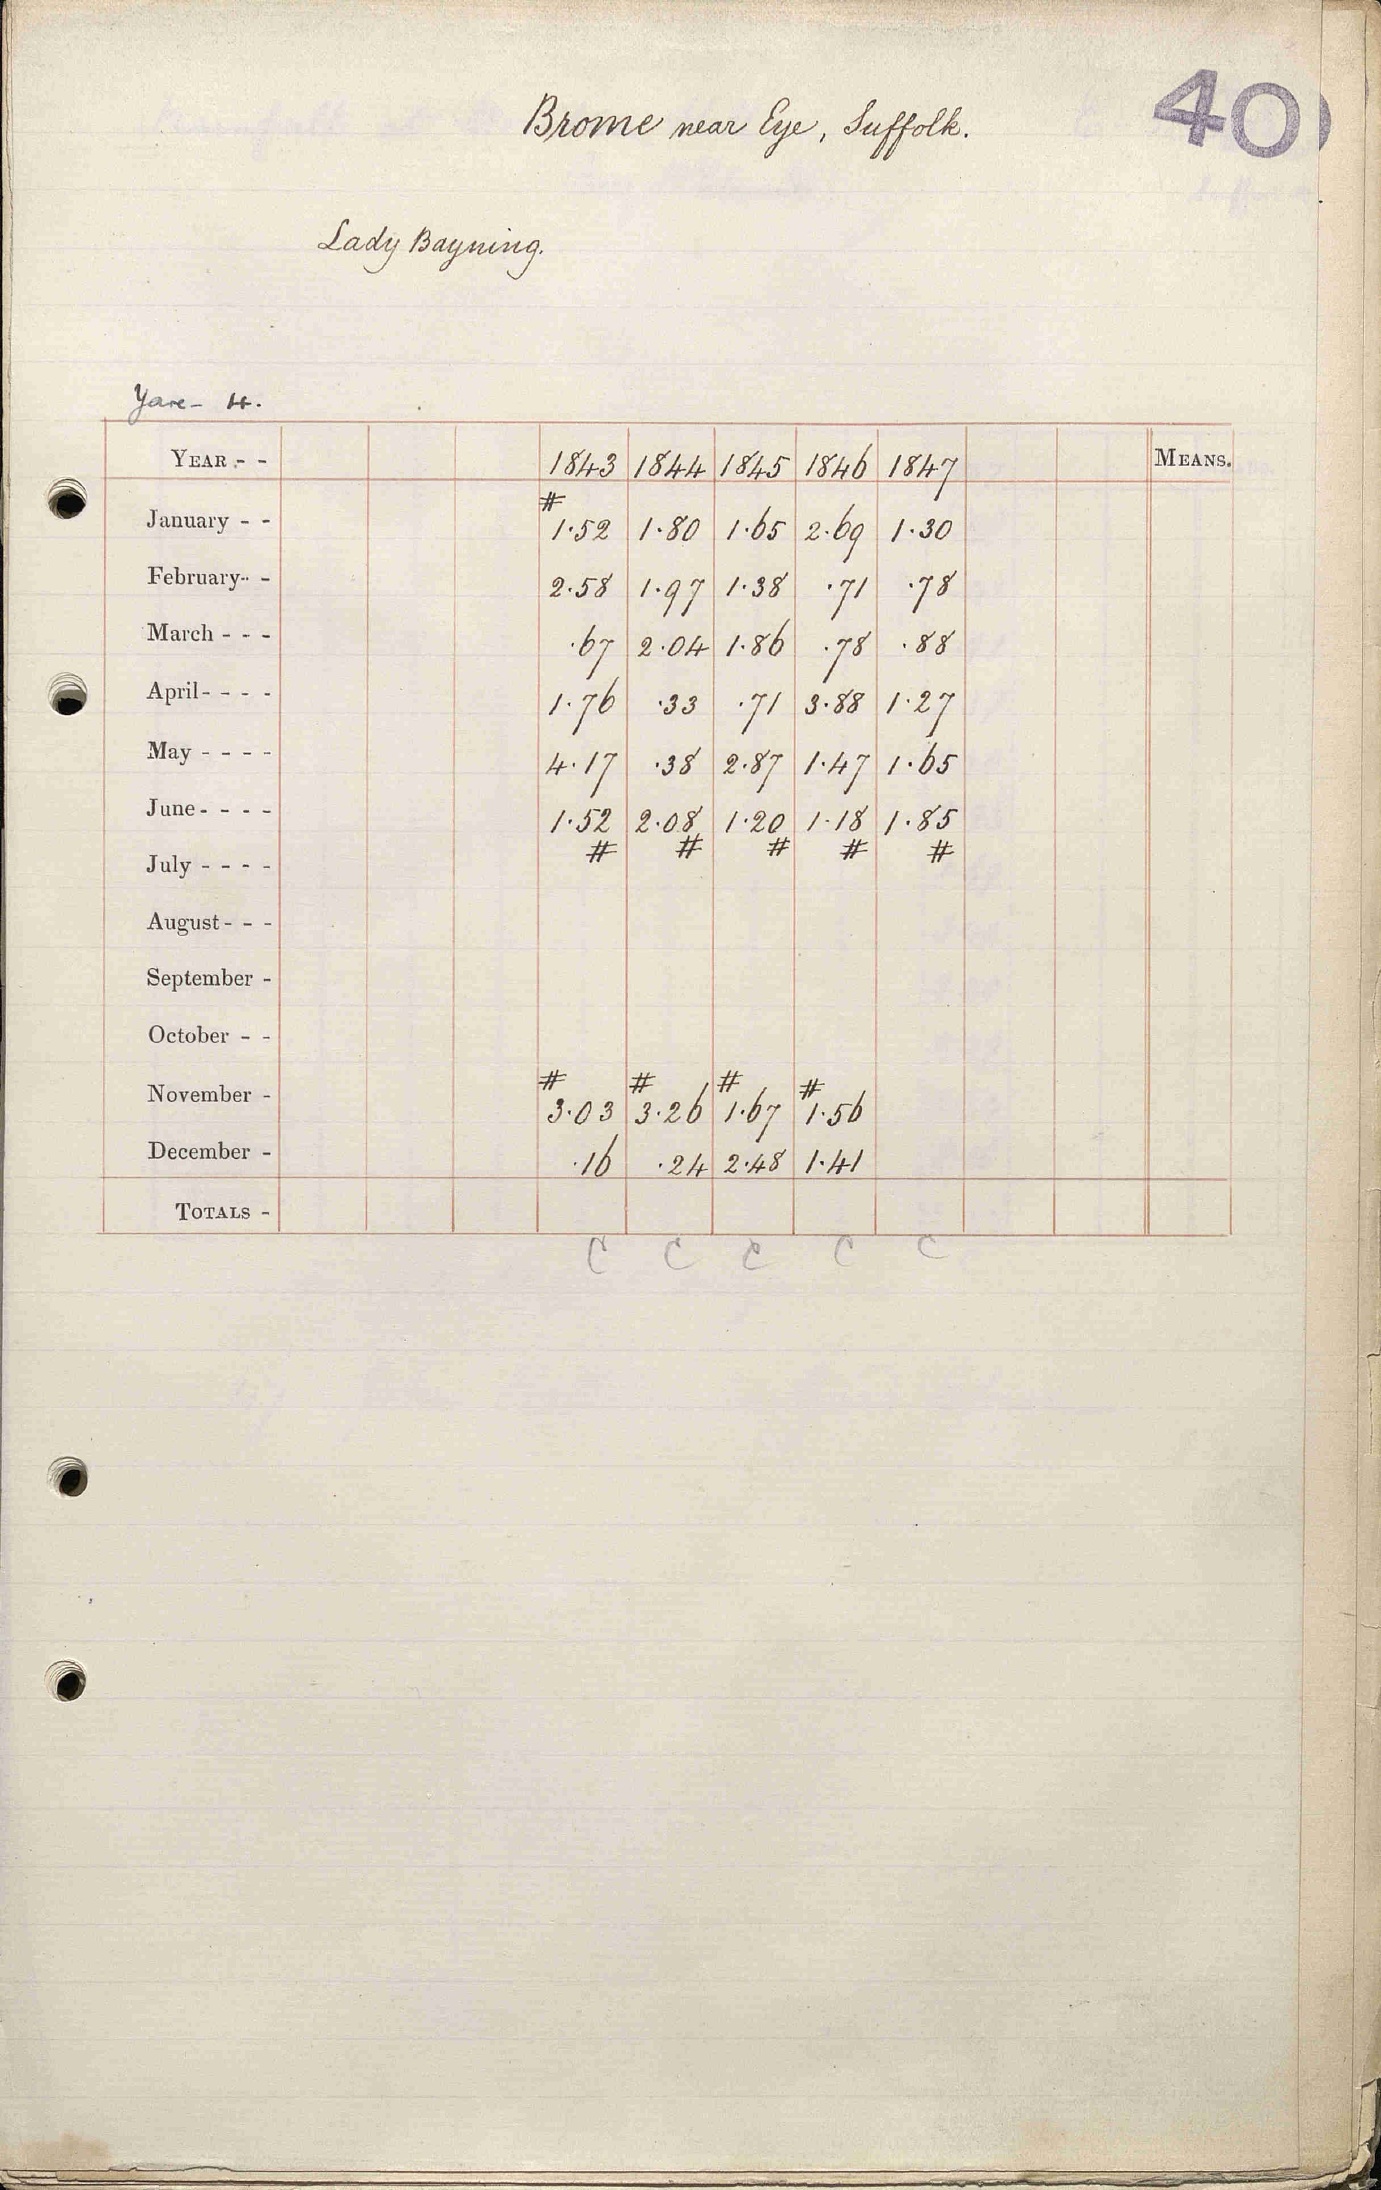 40
Brome near Eye, Suffolk.
Lady Bayning.
Yare - 4.
YEAR - - 1843 1844 1845 1846 1847 MEANS.
#
January - - 1.52 1.80 1.65 2.69 1.30
February - - 2.58 1.97 1.38 .71 .78
March - - - .67 2.04 1.86 .78 .88
April - - - - 1.76 .33 .71 3.88 1.27
May - - - - 4.17 .38 2.87 1.47 1.65
June - - - - 1.52 2.08 1.20 1.18 1.85
# # # # #
July - - - -
August - - -
September -
October - -
# # # #
November - 3.03 3.26 1.67 1.56
December - .16 .24 2.48 1.41
TOTALS -
C C C C C